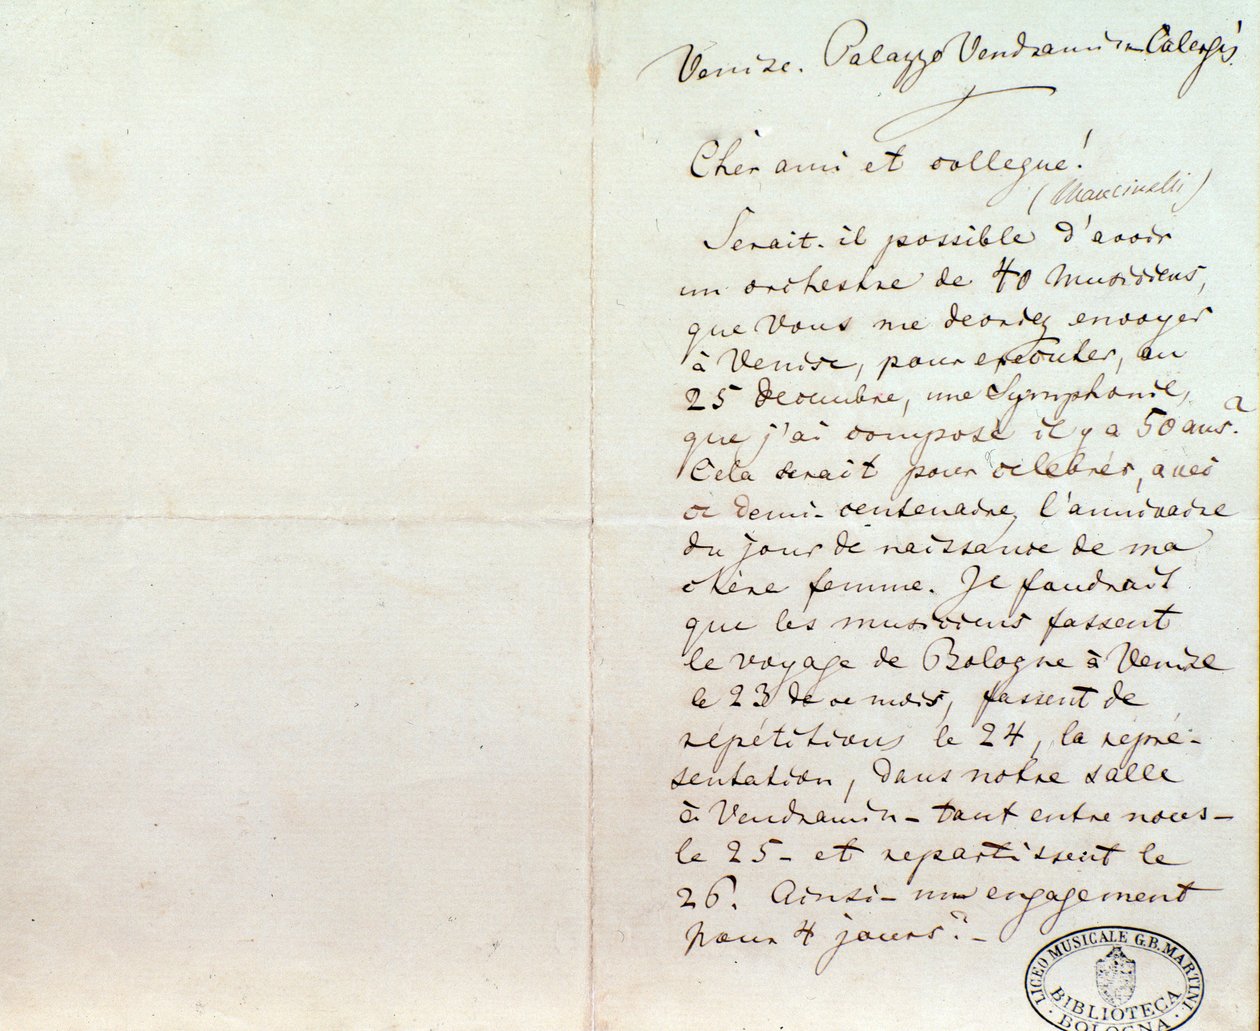 Venise. Palazzo Vendramin Calergis.
Cher ami et collegue!
(Mancinelli)
Serait-il possible d'avoir
un orchestre de 40 musiciens,
que Vous me devriez envoyer
à Venise, pour executer, au
25 Decembre, une Symphonie,
que j'ai composé il y a 50 ans?
Cela serait pour celebrer, avec
ce demi-centenaire, l'annivaire
du jour de naissance de ma
chère femme. Je faudrait
que les musiciens fassent
le voyage de Bologne à Venize
le 23 de ce mois, fassent de
répétitions le 24, la repré-
sentation, dans notre salle
à Vendramin - tout entre nous -
le 25 - et repartissent le
26. Ainsi - un engagement
pour 4 jours? -
LICEO MUSICALE G.B. MARTINI
BIBLIOTECA
BOLOGNA